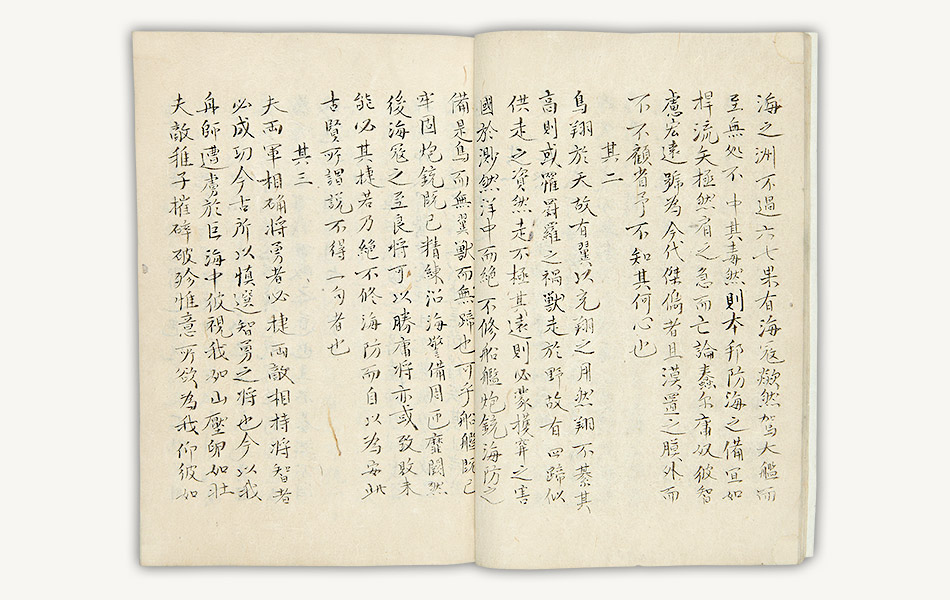 海之洲不過六七果有海寇欻然駕大艦而
至無処不中其毒然則本邦防海之備宜如
桿流矢極然眉之急而亡論蠢尓庸奴彼智
慮宏遠號為今代傑儁者且漠置之膜外而
不不顧省予不知其何心也
其二
鳥翔於天故有翼以充翔之用然翔不綦其
高則或罹罻羅之禍獣走於野故有四蹄似
供走之資然走不極其遠則必蒙擭穽之害
國於渺然洋中而絶不修船艦炮銃海防之
備是鳥而無翼獣而無蹄也可乎船艦既已
牢固炮銃既已精練沿海警備周匝靡闕然
後海寇之至良将可以勝庸将亦或致敗未
能必其捷若乃絶不修海防而自以為安此
古賢所謂説不得一句者也
其三
夫両軍相确将勇者必捷両敵相持将智者
必成功今古所以慎選智勇之将也今以我
舟師遭虜於巨海中彼視我如山壓卵如壮
夫敵稚子摧碎破殄惟意所欲為我仰彼如